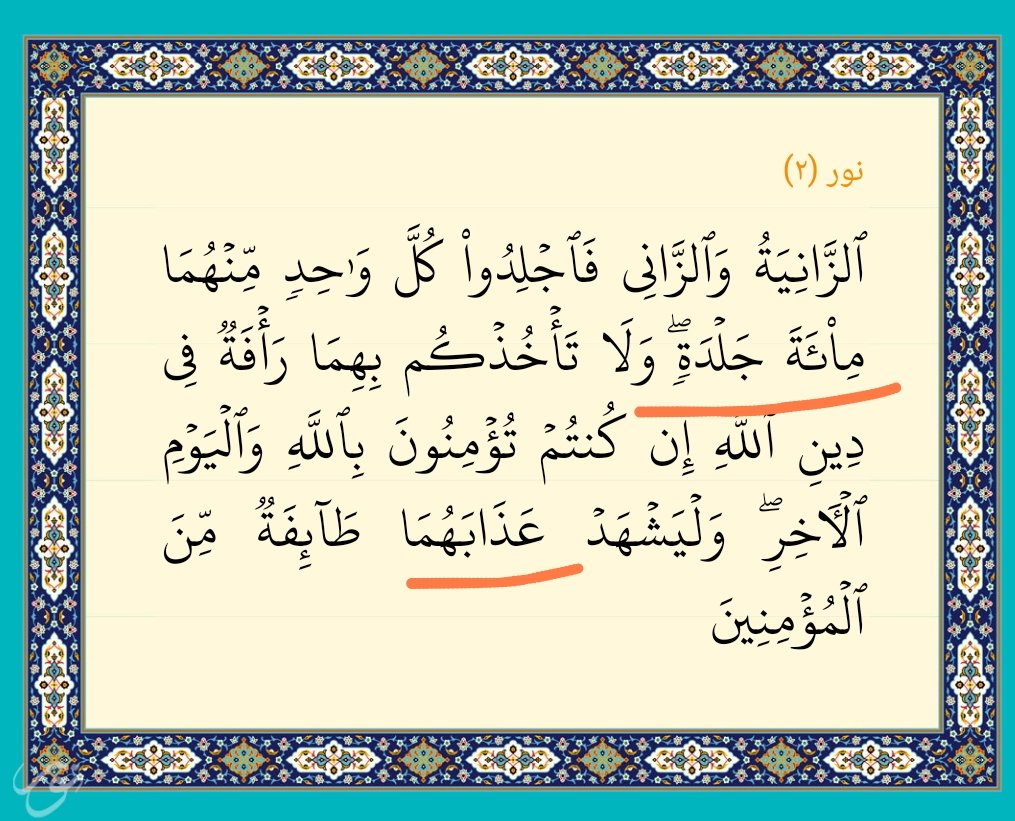 نور (۲)
ٱلزَّانِيَةُ وَٱلزَّانِى فَٱجْلِدُوا۟ كُلَّ وَٰحِدٍۢ مِّنْهُمَا
مِا۟ئَةَ جَلْدَةٍۢ ۖ وَلَا تَأْخُذْكُم بِهِمَا رَأْفَةٌۭ فِى
دِينِ ٱللَّهِ إِن كُنتُمْ تُؤْمِنُونَ بِٱللَّهِ وَٱلْيَوْمِ
ٱلْـَٔاخِرِ ۖ وَلْيَشْهَدْ عَذَابَهُمَا طَآئِفَةٌۭ مِّنَ
ٱلْمُؤْمِنِينَ